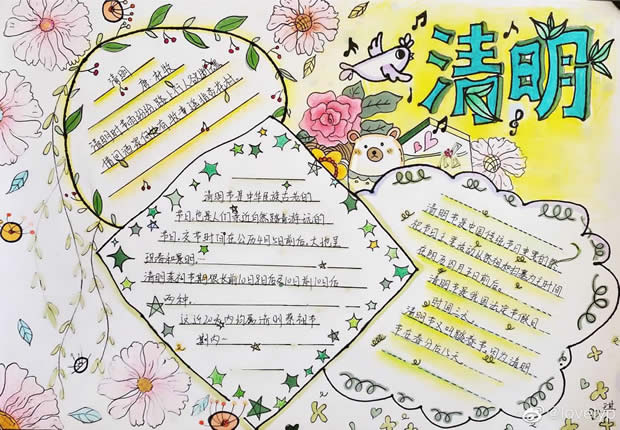 清明
清明 唐 杜牧
清明时节雨纷纷 路上行人欲断魂
借问酒家何处有 牧童遥指杏花村
清明节是中华民族古老的
节日,也是人们亲近自然踏青游玩的
节日,交节时间在公历4月5日前后,大地呈
现春和景明
清明祭祖节期很长前10日8日后至10日前10日后
两种,
这近20天内均属清明祭祖节
期内~
清明节是中国传统节日中重要的祭
祀节日 主要活动从祭祖和扫墓为主时间
在阳历四月五日前后。
清明节是我国法定节假日
时间三天
清明节又叫踏青节因为清明
节在春分后
@lovelyp